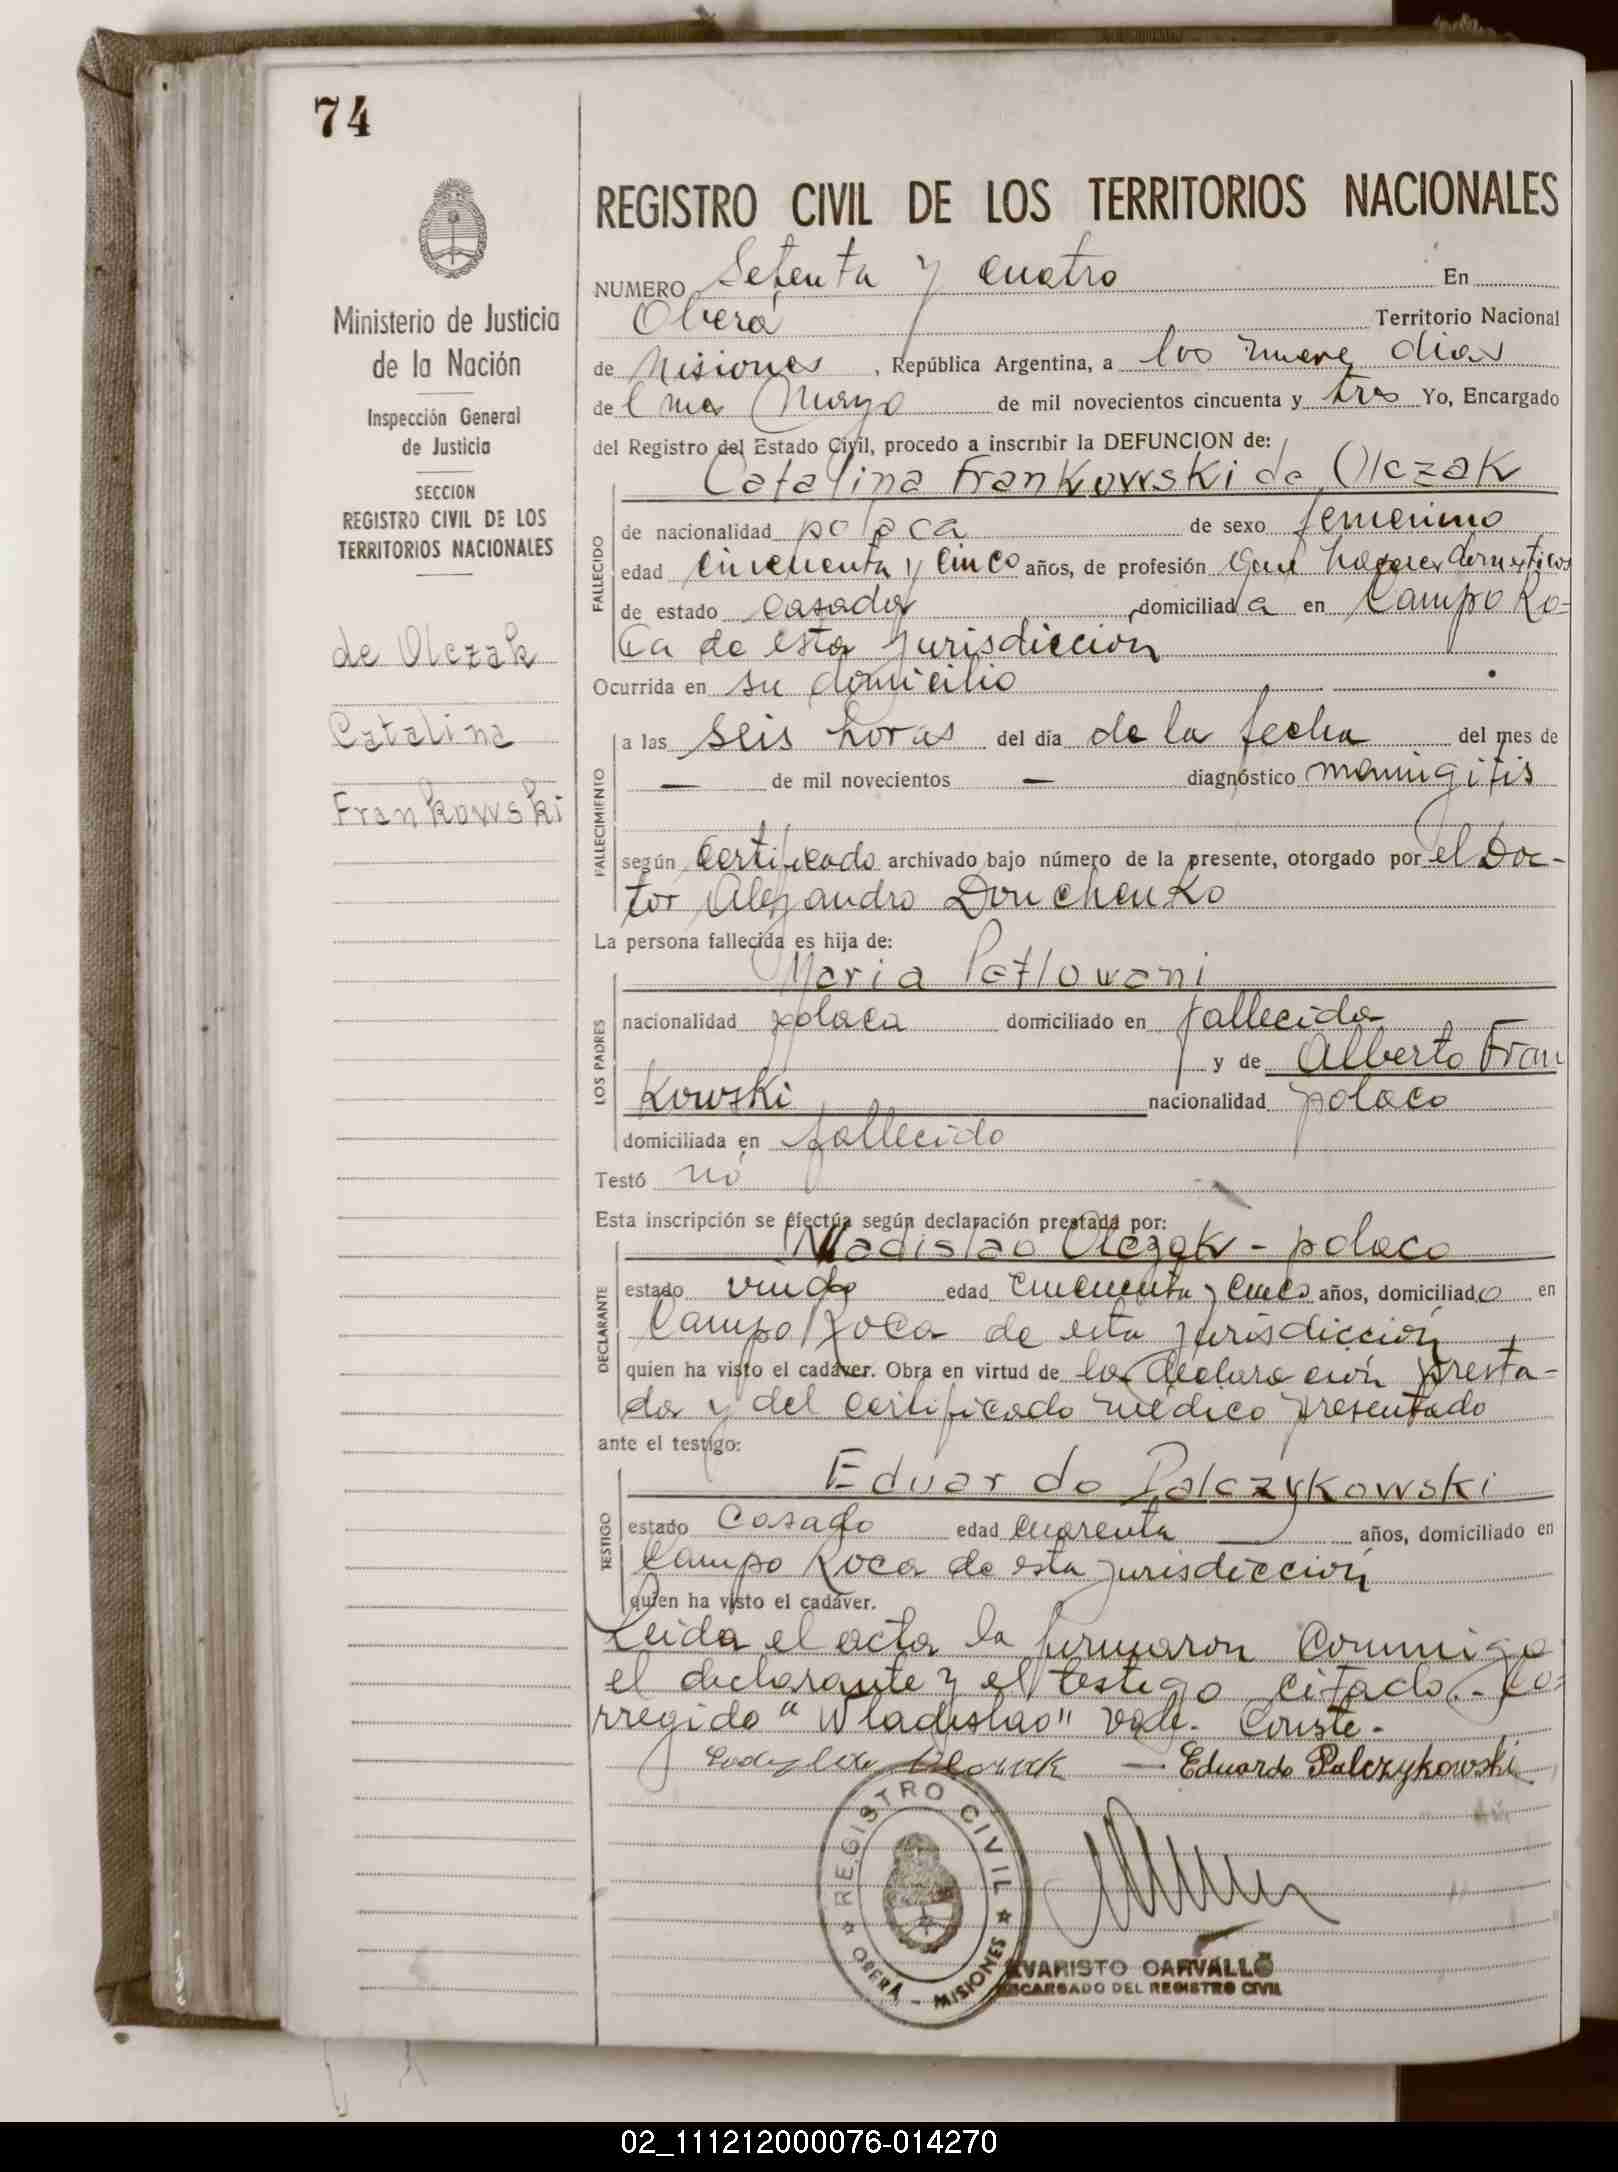 74
Ministerio de Justicia
de la Nación
Inspección General
de Justicia
SECCION
REGISTRO CIVIL DE LOS
TERRITORIOS NACIONALES
de Olczak
Catalina
Frankowski
REGISTRO CIVIL DE LOS TERRITORIOS NACIONALES
NUMERO Setenta y cuatro En
Oberá Territorio Nacional
de Misiones, República Argentina, a los nueve dias
del mes Mayo de mil novecientos cincuenta y tres Yo, Encargado
del Registro del Estado Civil, procedo a inscribir la DEFUNCION de:
Catalina Frankowski de Olczak
FALLECIDO
de nacionalidad polaca de sexo femenino
edad cincuenta y cinco años, de profesión Que haceres domesticos
de estado casada domiciliada en Campo Ro=
ca de esta jurisdicción
Ocurrida en su domicilio
FALLECIMIENTO
a las seis horas del día de la fecha del mes de
— de mil novecientos — diagnóstico
según certificado archivado bajo número de la presente, otorgado por el Doc-
tor Alejandro Donchenko
La persona fallecida es hija de:
LOS PADRES
Maria
nacionalidad polaca domiciliado en fallecida
y de Alberto Fran
kowski nacionalidad polaco
domiciliada en fallecido
Testó no
Esta inscripción se efectúa según declaración prestada por:
DECLARANTE
Wladislao Olczak - polaco
estado viudo edad cincuenta y cinco años, domiciliado en
Campo Roca de esta jurisdicción
quien ha visto el cadáver. Obra en virtud de la declaración presta-
da y del certificado médico presentado
ante el testigo:
TESTIGO
Eduardo Palczykowski
estado Casado edad cuarenta años, domiciliado en
Campo Roca de esta jurisdicción
quien ha visto el cadáver.
Leida el acta la firmaron conmigo
el declarante y el testigo citado.- Co=
rregido "Wladislao" vale. Conste.-
— Eduardo Palczykowski
REGISTRO CIVIL
OBERÁ - MISIONES
EVARISTO CARVALLO
ENCARGADO DEL REGISTRO CIVIL
02_111212000076-014270